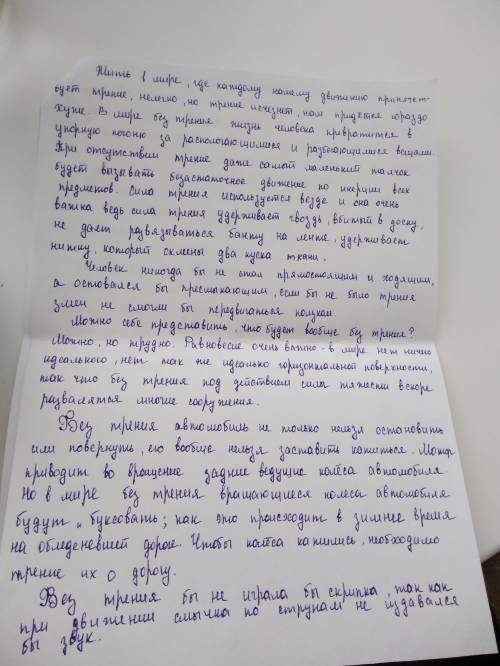 Жить в мире, где каждому нашему движению препятст-
вует трение, нелегко, но трение исчезнет, нам придется гораздо
хуже. В мире без трения жизнь человека превратится в
упорную погоню за расползающимися и разбегающимися вещами.
При отсутствии трение даже самый маленький толчок
будет вызывать безостаточное движение по инерции всех
предметов. Сила трения используется везде и она очень
важна ведь сила трения удерживает гвоздь, вбитый в доску,
не дает развязываться банту на ленте, удерживает
нитку, которой склены два куска ткани.
Человек никогда бы не стал прямостоящим и ходящим,
а оставался бы пресмыкающим, если бы не было трения
змеи не смогли бы передвигаться ползком.
Можно себе представить, что будет вообще без трение?
Можно, но трудно. Равновесие очень важно - в мире нет ничего
идеального, нет так же идеально горизонтальной поверхности,
так что без трения под действием силы тяжести вскоре
развалятся многие сооружения.
Без трения автомобиль не только нельзя остановить
или повернуть, его вообще нельзя заставить катиться. Мотор
приводит во вращение задние ведущие колёса автомобиля
Но в мире без трения вращающиеся колеса автомобиля
будут "буксовать", как это происходит в зимнее время
на обледеневшей дороге. Чтобы колёса катились, необходимо
трение их о дорогу.
Без трения бы не играла бы скрипка, так как
при движении смычка по струнам не издавался
бы звук.